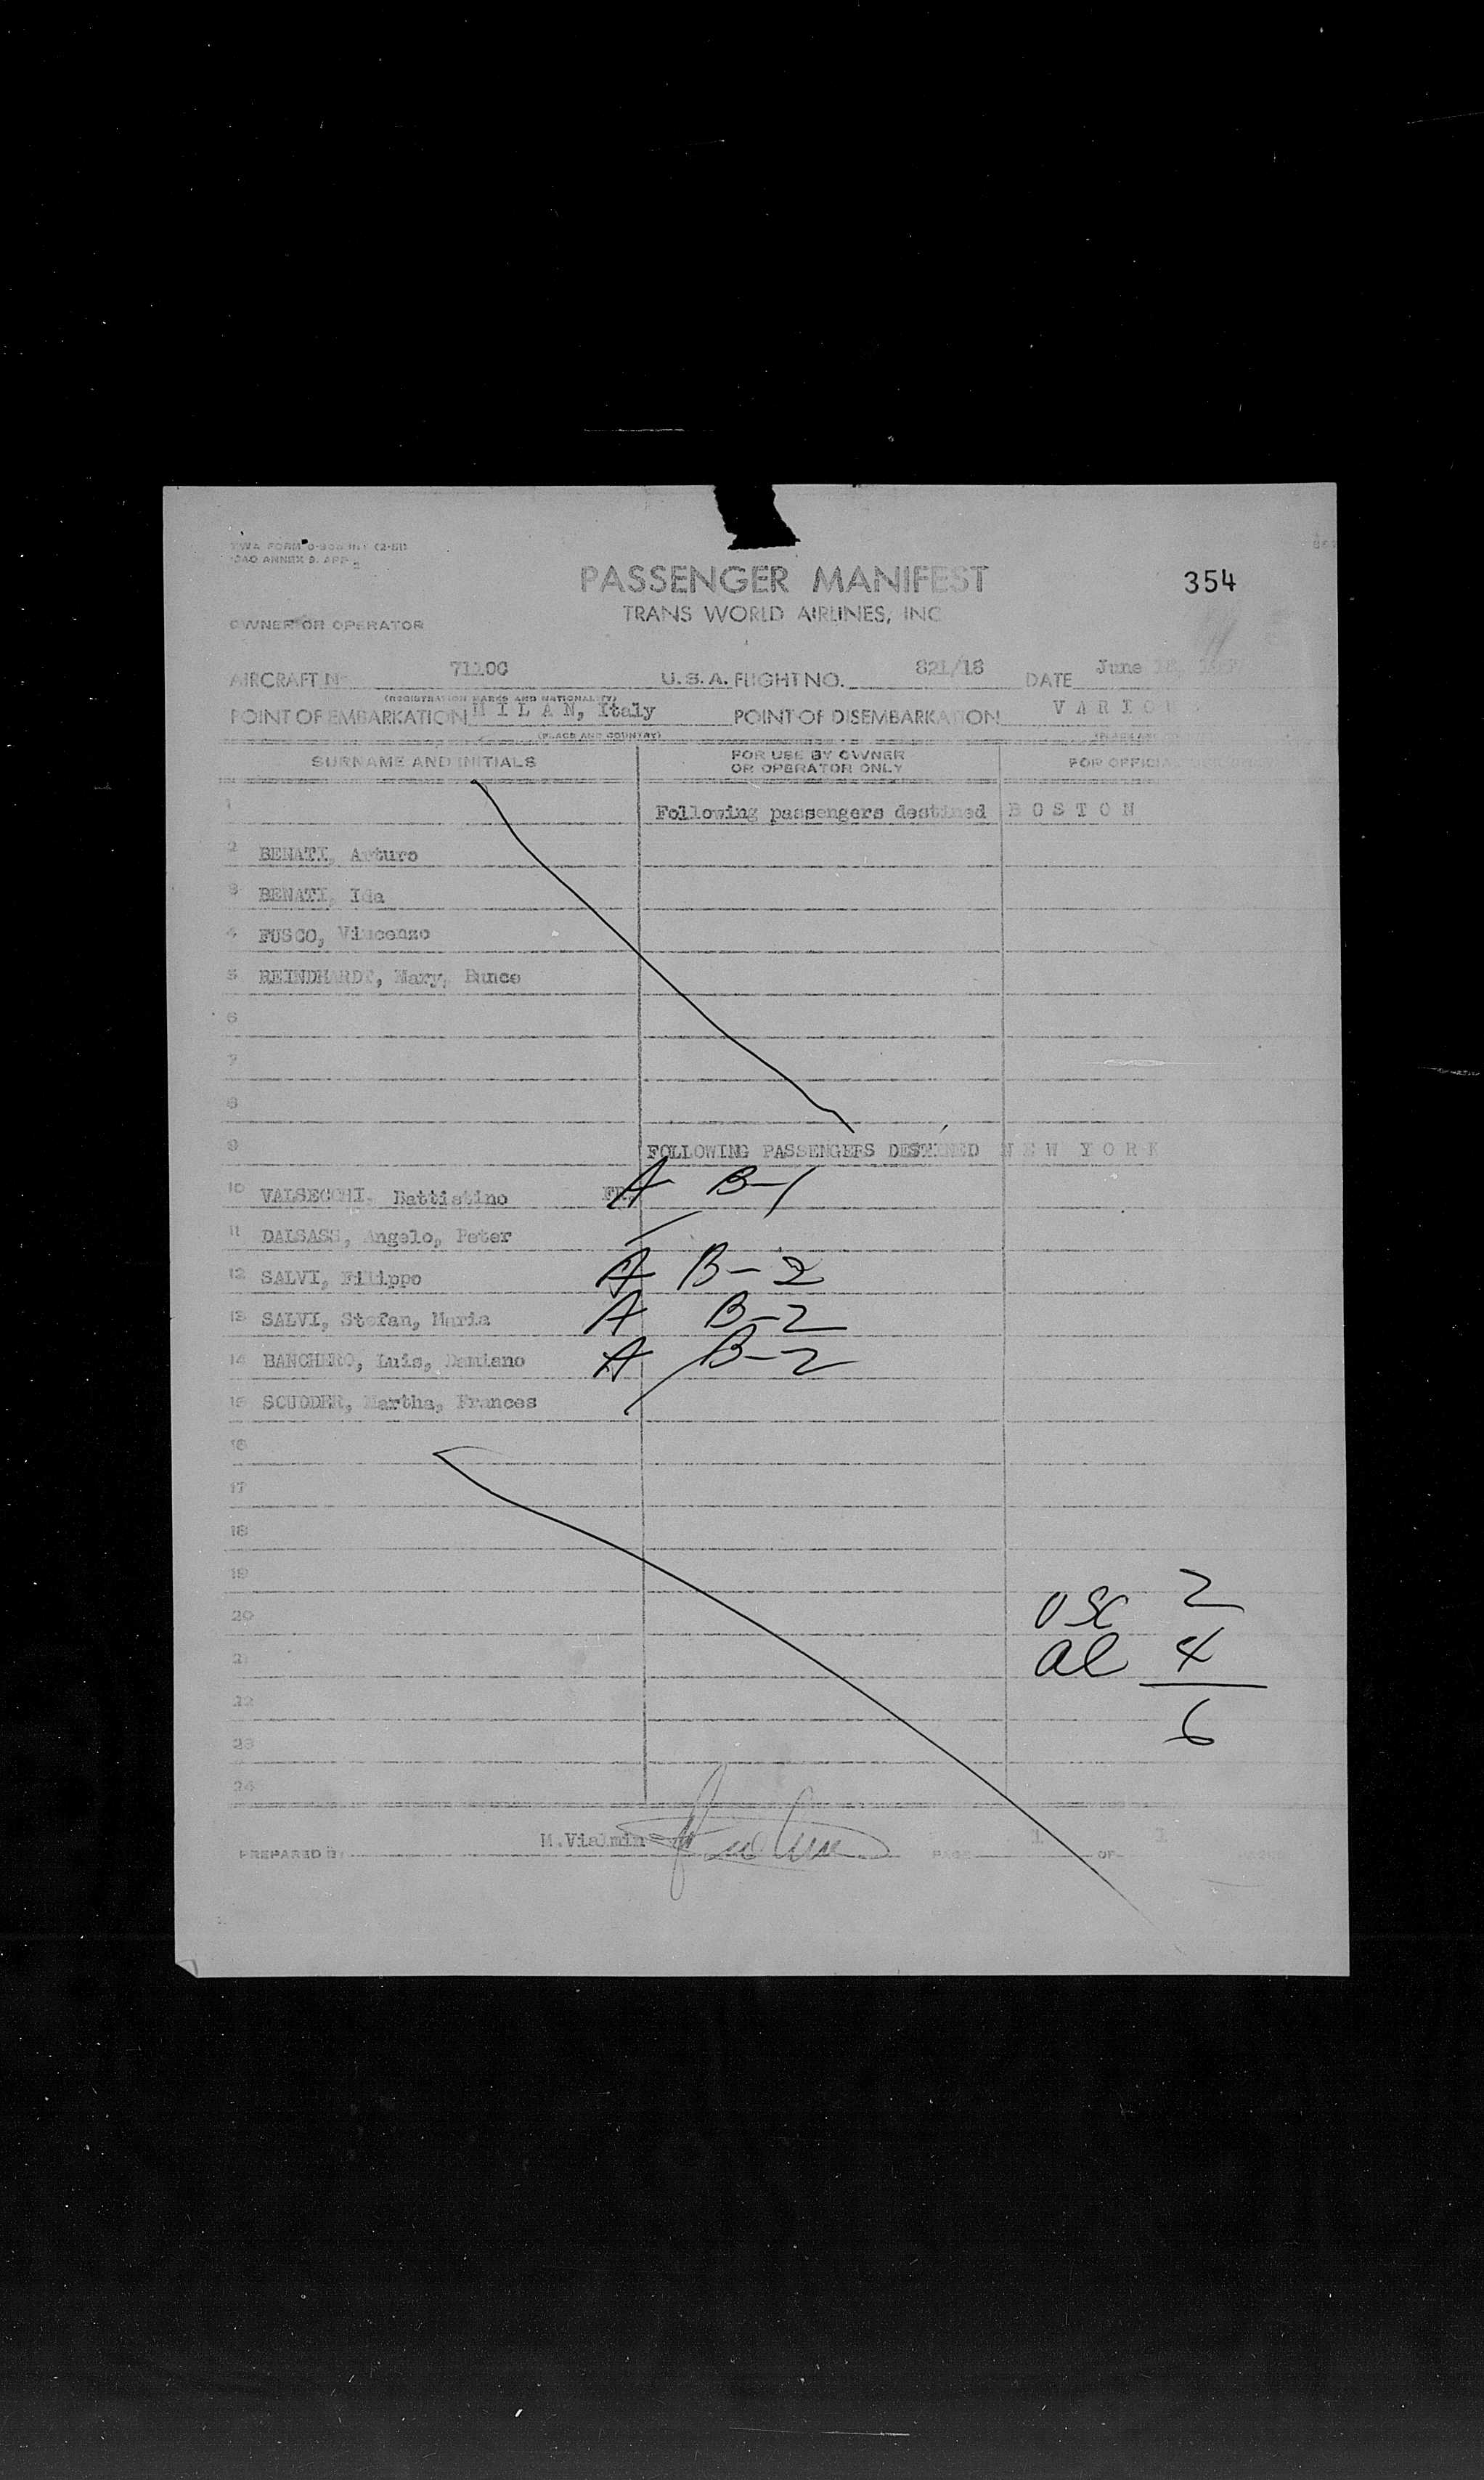 PASSENGER MANIFEST
354
TRANS WORLD AIRLINES, INC
OWNER OR OPERATOR
AIRCRAFT No 7110C U.S.A. FLIGHT NO. 821/18 DATE June 18,
(REGISTRATION MARKS AND NATIONALITY)
POINT OF EMBARKATION M I L A N, Italy POINT OF DISEMBARKATION V A R I O U S
(PLACE AND COUNTRY)
SURNAME AND INITIALS FOR USE BY OWNER OR OPERATOR ONLY FOR OFFICIAL USE ONLY
1 Following passengers destined B O S T O N
2 BENATI, Arturo
3 BENATI, Ida
4 FUSCO, Vincenzo
5 REINDHARDT, Mary, Bunce
6
7
8
9 FOLLOWING PASSENGERS DESTINED N E W Y O R K
10 VALSECCHI, Battistino A B-1
11 DALSASS, Angelo, Peter
12 SALVI, Filippo A B-2
13 SALVI, Stefan, Maria A B-2
14 BANCHERO, Luis, Damiano A B-2
15 SCUDDER, Martha, Frances
16
17
18
19
20 USC 2
21 al 4
22
23 6
24
PREPARED BY M.Vialmin PAGE 1 OF 1